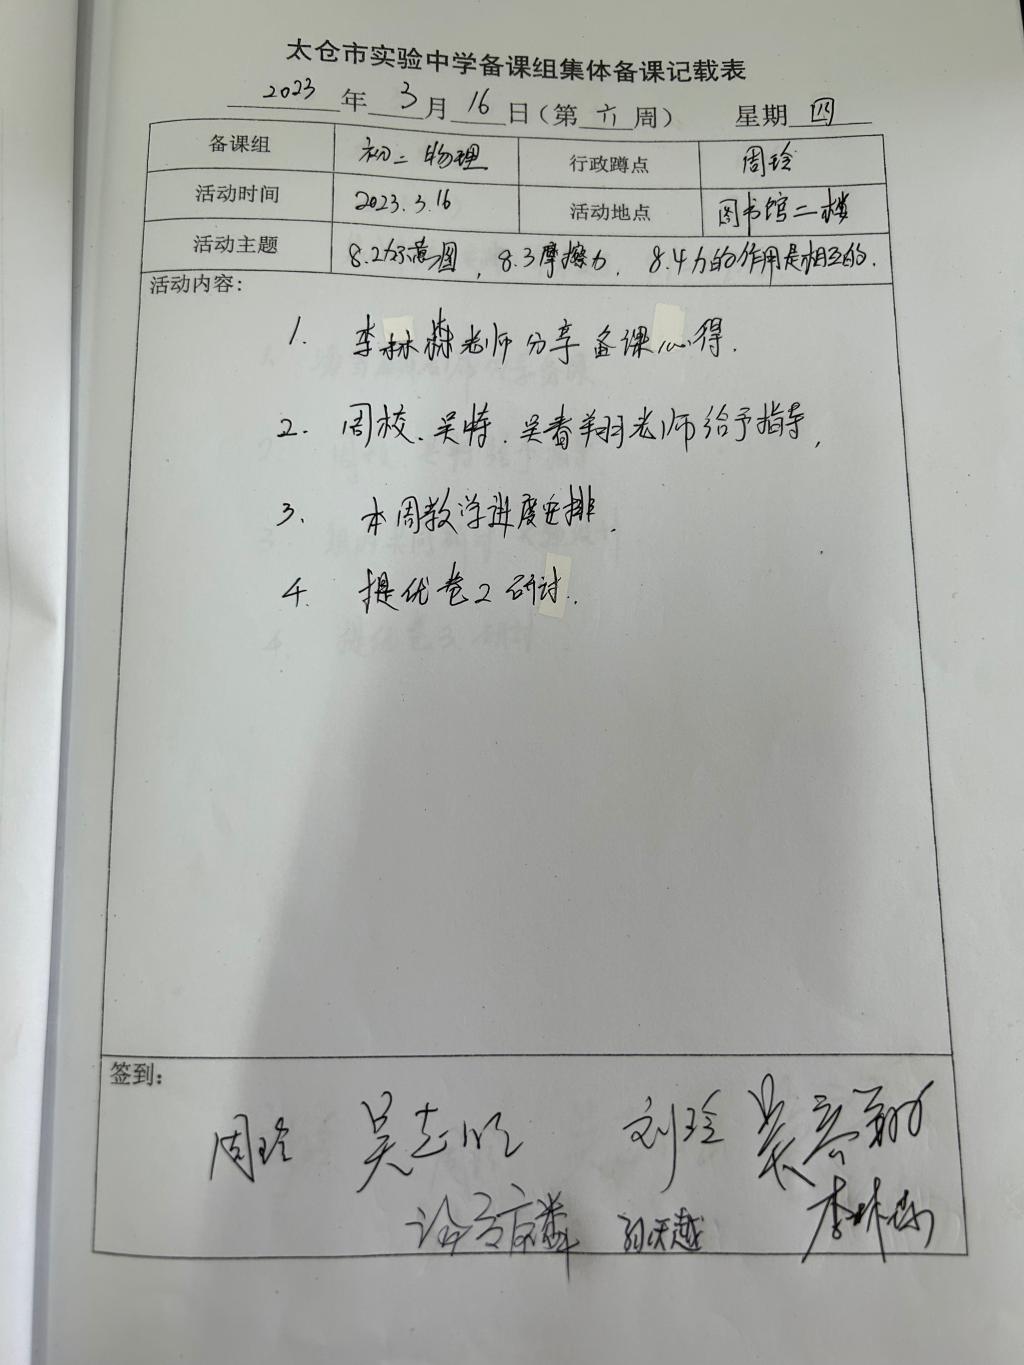 太仓市实验中学备课组集体备课记载表
2023 年 3 月 16 日（第 六 周） 星期 四
备课组 初二 物理 行政蹲点 周玲
活动时间 2023.3.16 活动地点 图书馆二楼
活动主题 8.2力示意图，8.3摩擦力，8.4力的作用是相互的.
活动内容：
1. 李林森老师分享备课心得.
2. 周校、吴特、吴春翔老师给予指导,
3. 本周教学进度安排.
4. 提优卷2研讨.
签到：
周玲 吴志明 刘玲 吴春翔
天越 李林森